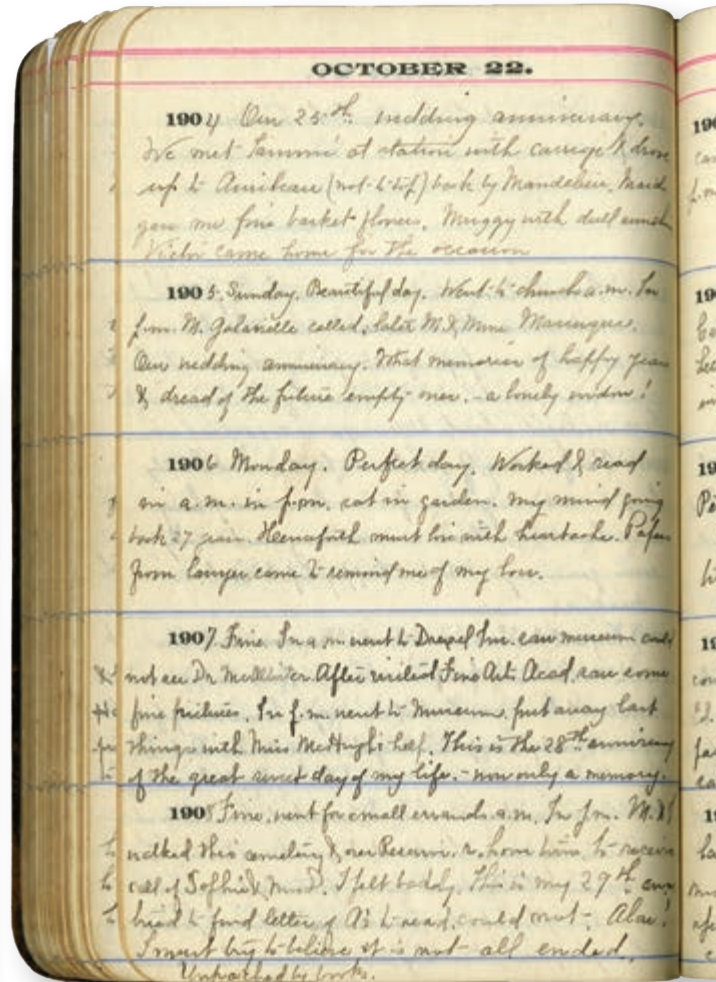 OCTOBER 22.
1904 Our 25th wedding anniversary.
We met Sammie at station with carriage & drove
up to (not to top) back by Mandelieu. Maid
gave me fine basket flowers. Muggy with dull
Victor came home for the occasion
1905. Sunday. Beautiful day. Went to church a.m. In
p.m. M. called, later M. & Mme
Our wedding anniversary. What memories of happy years
& dread of the future empty ones. - a lonely widow!
1906 Monday. Perfect day. Worked & read
in a.m. in p.m. sat in garden. My mind going
back 27 years. Henceforth must live with heartache. Papers
from lawyer came to remind me of my loss.
1907. Fine. In a.m. went to Drexel Inst. saw museum could
not see Dr. After visited Fine Arts Acad. saw some
fine pictures. In p.m. went to Museum, put away last
things with Miss McHugh's help. This is the 28th anniversary
of the great sweet day of my life. - now only a memory.
1908 Fine, went for small errands a.m. In p.m. M. & I
walked thro cemetery & over home time to receive
call of Sophie & I felt badly. This is my 29th
tried to find letter of A's to read, could not. Alas!
I must try to believe it is not all ended.
Unpacked by books.
190
190
190
19
19